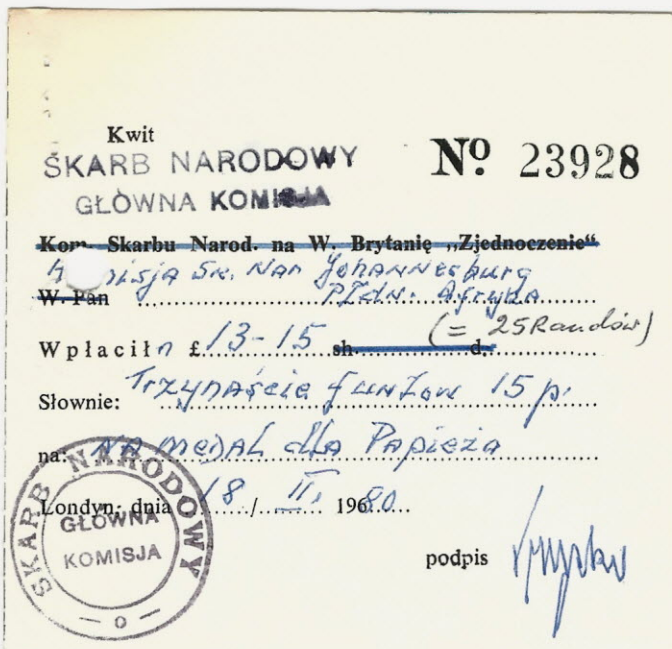 Kwit
SKARB NARODOWY
GŁÓWNA KOMISJA
No 23928
Kom. Skarbu Narod. na W. Brytanię „Zjednoczenie“
Komisja Sk. Nar Johannesburg
W. Pan Płdn. Afryka
Wpłacił £ 13-15 sh. d. (= 25 Randów)
Słownie: Trzynaście funtów 15 p.
na: NA medAL dla Papieża
Londyn, dnia 18 / II. 1980
podpis
SKARB NARODOWY
GŁÓWNA
KOMISJA